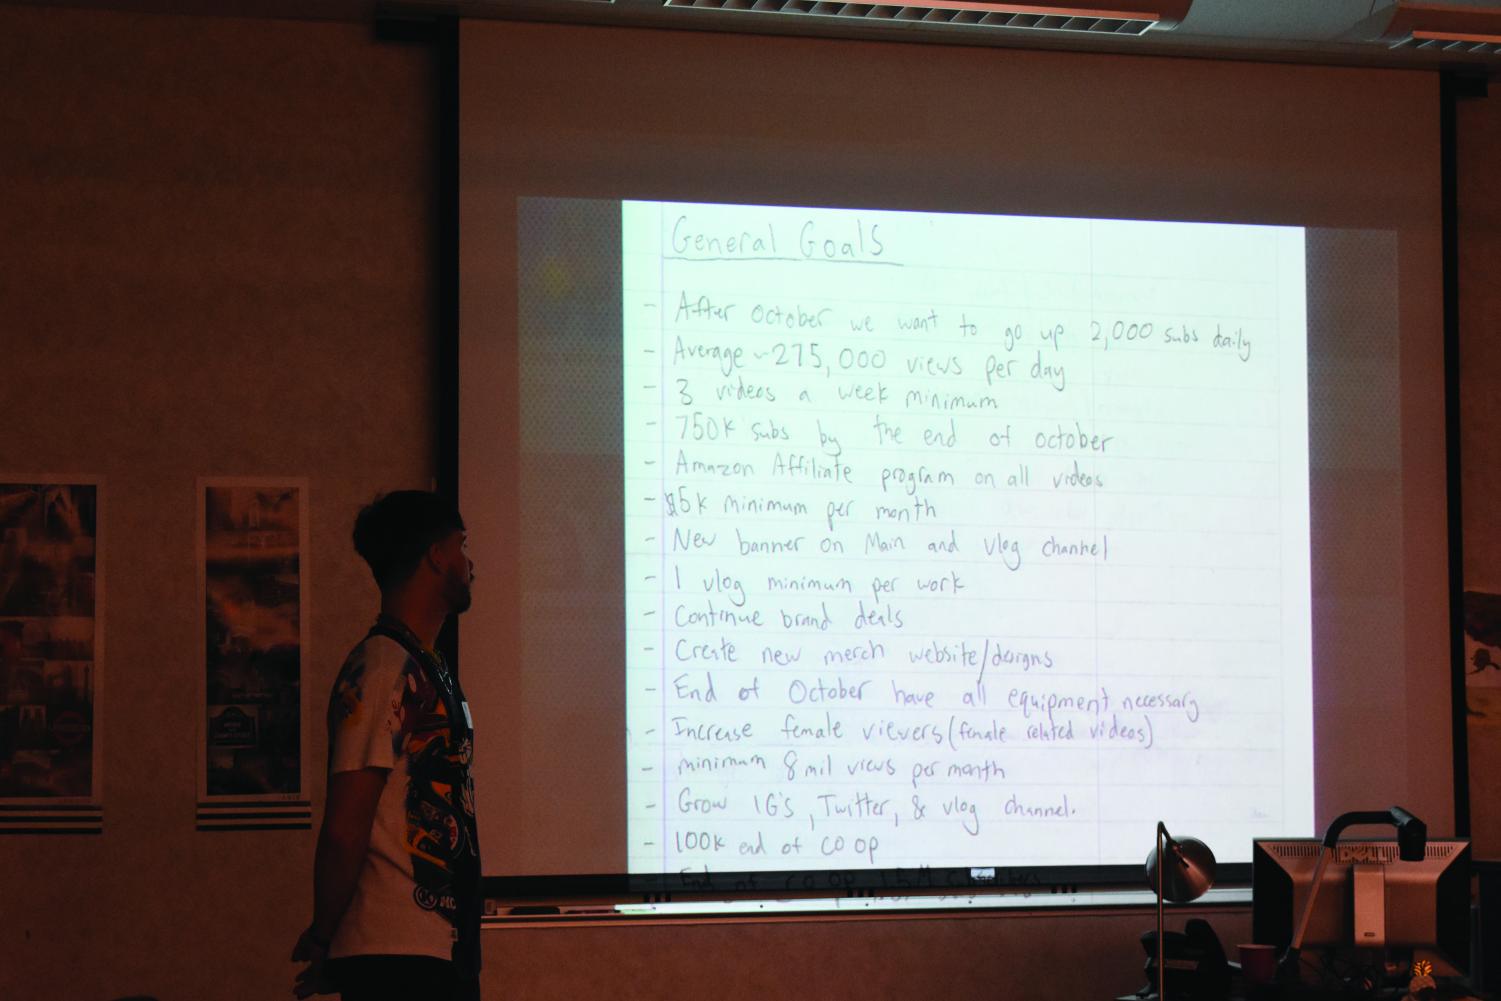 General Goals
- After October we want to go up 2,000 subs daily
- Average ~275,000 views per day
- 3 videos a week minimum
- 750k subs by the end of october
- Amazon Affiliate program on all videos
- $5k minimum per month
- New banner on Main and Vlog channel
- 1 vlog minimum per work
- Continue brand deals
- Create new merch website/designs
- End of October have all equipment necessary
- Increase female viewers (female related videos)
- minimum 8 mil views per month
- Grow IG's, Twitter, & vlog channel.
- 100k end of CO OP
End of CO OP 1.5M